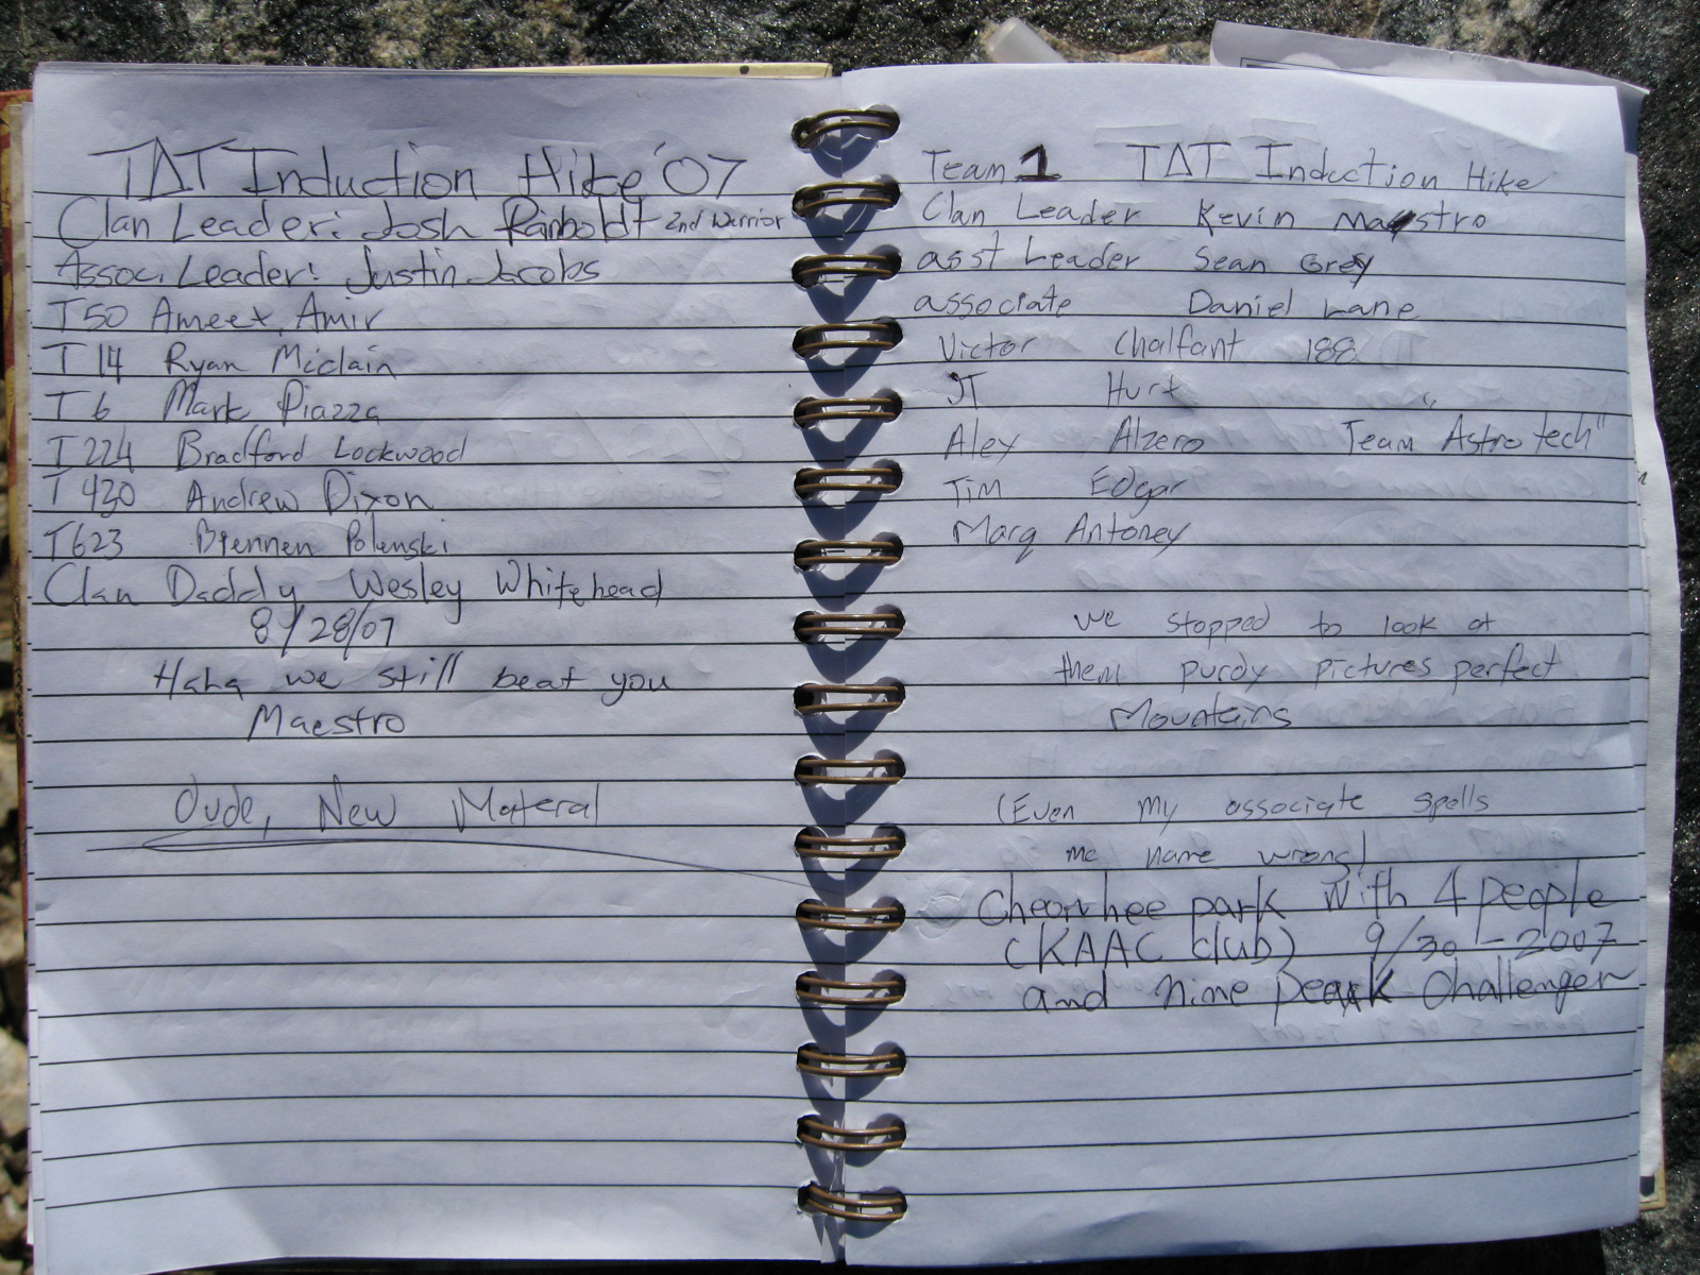 TΔT Induction Hike '07
Clan Leader: Josh Rainboldt 2nd Warrior
Assoc. Leader: Justin Jacobs
T50 Ameet Amir
T14 Ryan Miclain
T6 Mark Piazza
T224 Bradford Lockwood
T420 Andrew Dixon
T623 Brennen Polenski
Clan Daddy Wesley Whitehead
8/28/07
Haha we still beat you
Maestro
Dude, New Materal
Team 1 TΔT Induction Hike
Clan Leader Kevin Maestro
asst Leader Sean Grey
associate Daniel Lane
Victor Chalfant 188
JT Hurt
Aley Alzero "Team Astrotech"
Tim Edgar
Marq Antoney
we stopped to look at
them purdy pictures perfect
Mountains
(Even my associate spells
me name wrong)
Cheonhee park with 4 people
(KAAC club) 9/30-2007
and nine peak challenger